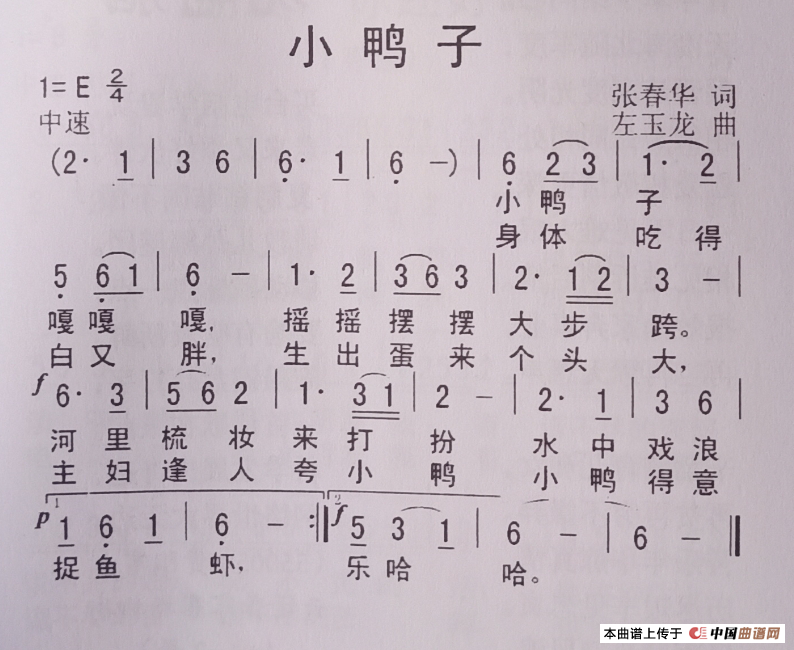 小鸭子
1=E 2/4
张春华 词
中速
左玉龙 曲
(2· 1 | 3 6 | 6· 1 | 6 -) | 6 2 3 | 1· 2 |
小鸭 子
身体 吃得
5 6 1 | 6 - | 1· 2 | 3 6 3 | 2· 1 2 | 3 - |
嘎嘎 嘎, 摇摇摆摆大步 跨。
白又 胖, 生出蛋来个头 大,
f 6· 3 | 5 6 2 | 1· 3 1 | 2 - | 2· 1 | 3 6 |
河里梳妆来打 扮 水中戏浪
主妇逢人夸小 鸭 小鸭得意
1 2
p 1 6 1 | 6 - :|| f 5 3 1 | 6 - | 6 - ||
捉鱼 虾, 乐哈 哈。
本曲谱上传于 中国曲谱网